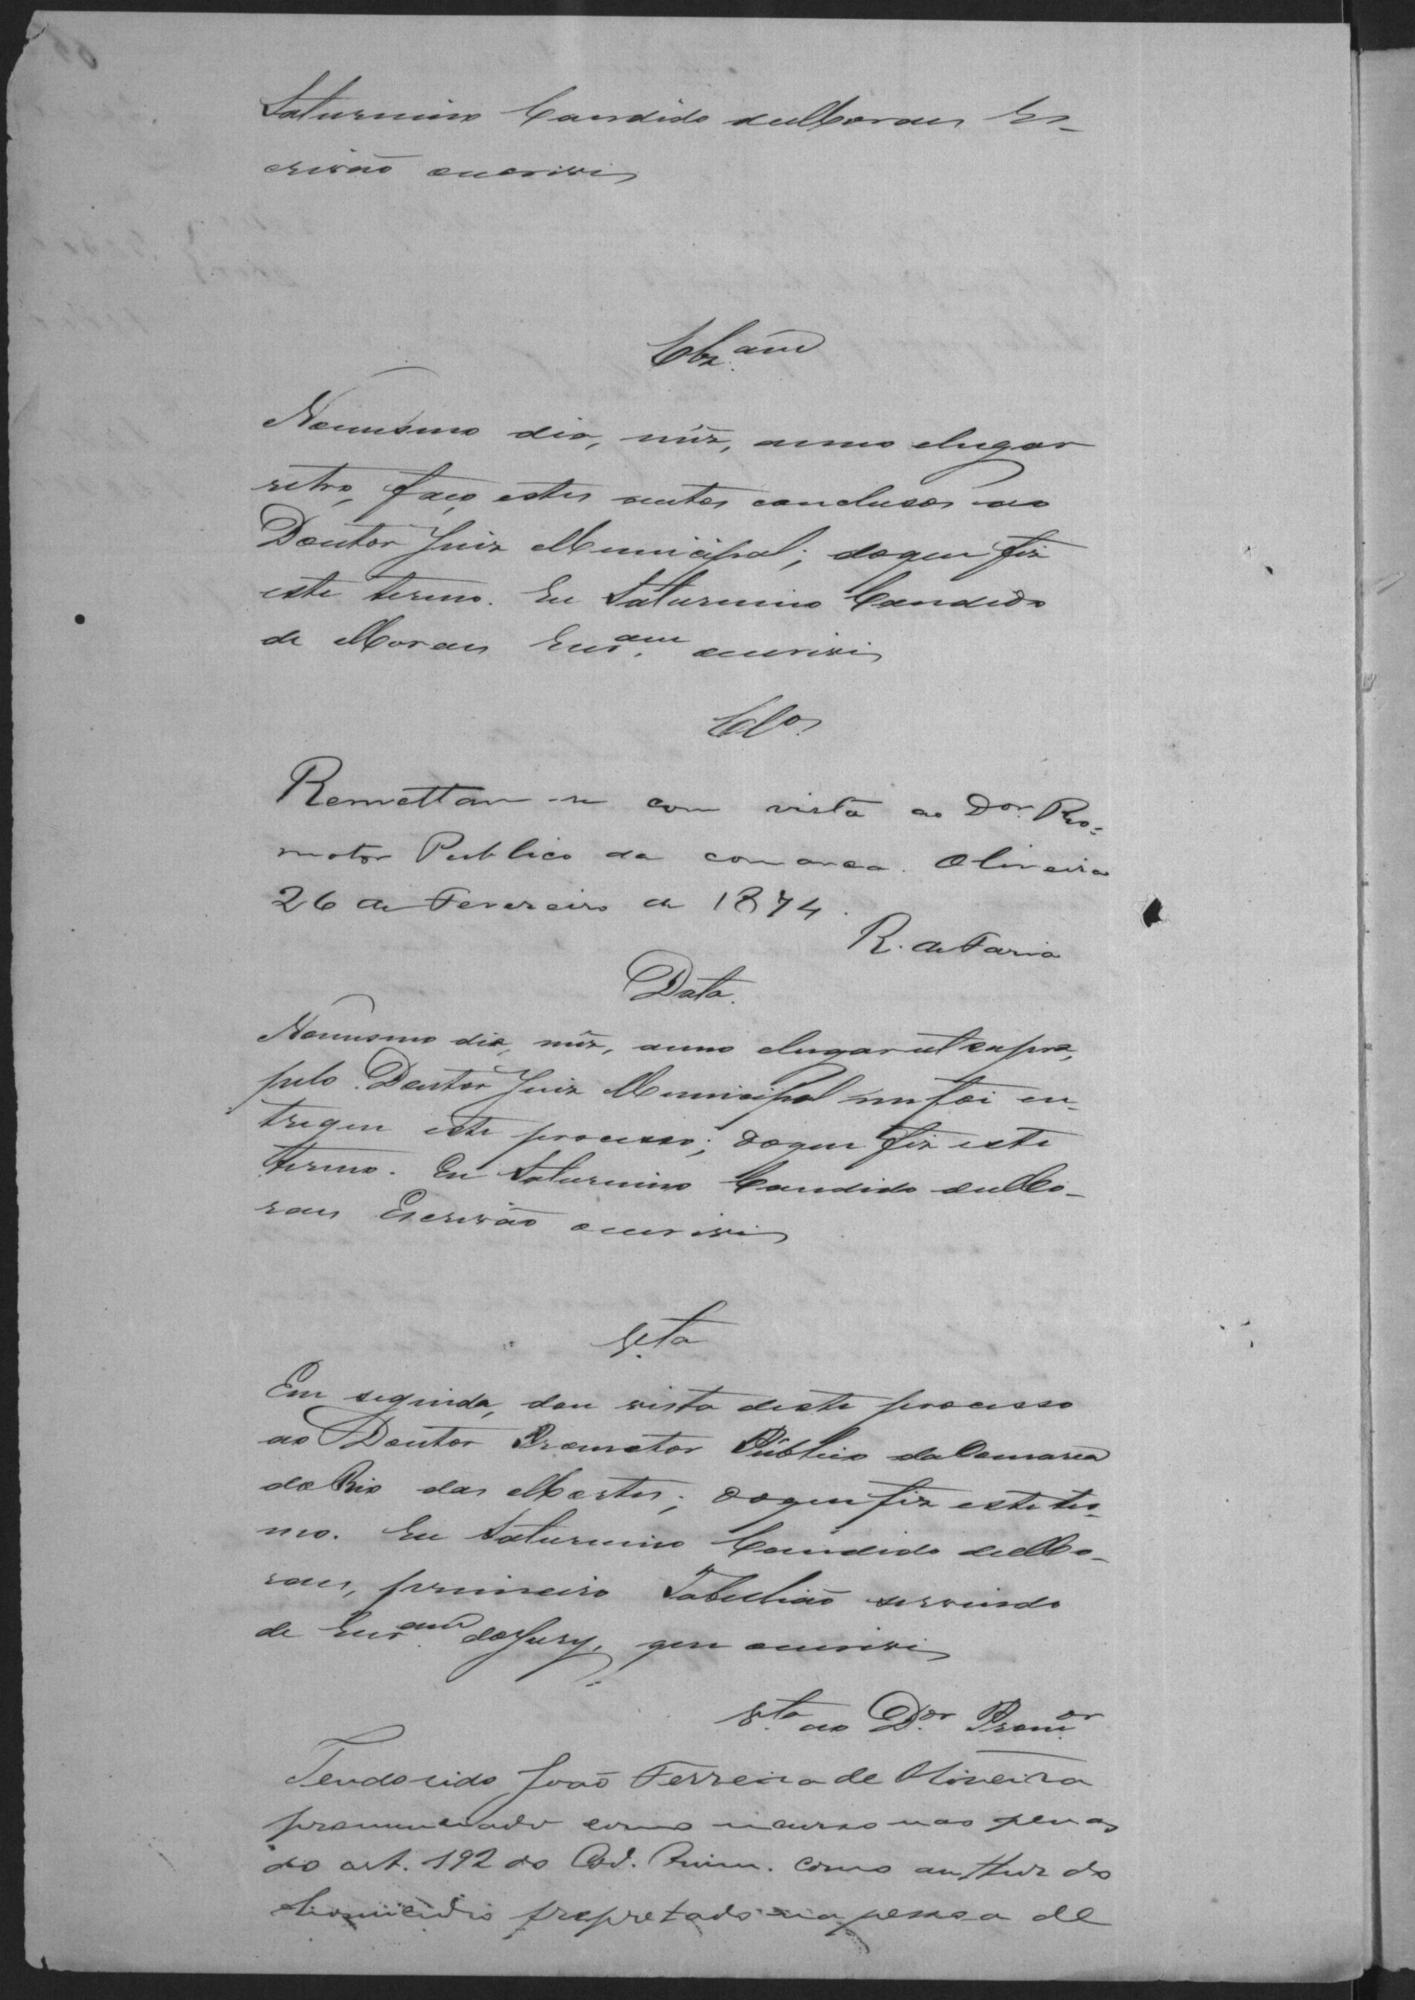 Saturnino Candido de Moraes Es-
crivão escrivi
Clz.am
No mesmo dia, mez, anno e lugar
retro, faço estes autos conclusos ao
Doutor Juiz Municipal; do que fiz
este termo. Eu Saturnino Candido
de Moraes Escr.am escrivi
Cl.os
Remettam-se com vista ao D.or Pro-
motor Publico da comarca. Oliveira
26 de Fevereiro de 1874.
R. de Faria
Data.
No mesmo dia, mez, anno e lugar ut supra,
pelo Doutor Juiz Municipal me foi en-
tregue este processo; do que fiz este
termo. Eu Saturnino Candido de Mo-
raes Escrivão escrivi
V.ta
Em seguida, dou vista deste processo
ao Doutor Promotor Publico da Comarca
do Rio das Mortes; do que fiz este ter-
mo. Eu Saturnino Candido de Mo-
raes, primeiro Tabelião servindo
de Escr.am do Jury, que escrivi
V.ta ao D.or Prom.or
Tendo sido João Ferreira de Oliveira
pronunciado como incurso nas penas
do art. 192 do Cod. Crim. como author do
homicidio prepretado na pessoa de